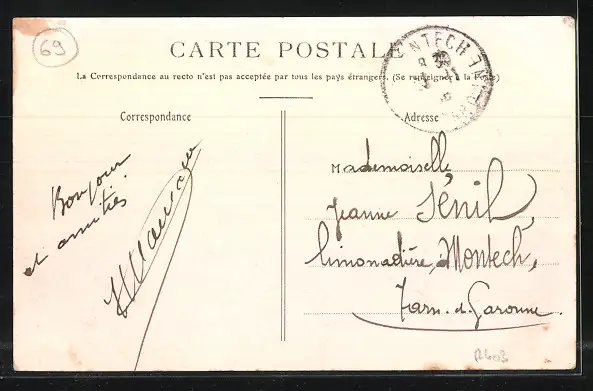 69
CARTE POSTALE
La Correspondance au recto n'est pas acceptée par tous les pays étrangers. (Se renseigner à la Poste)
MONTECH TARN
Correspondance
Adresse
Bonjour
et amitiés
Mademoiselle,
Jeanne Sénil,
limonadière, à Montech,
Tarn. et. Garonne.
R403